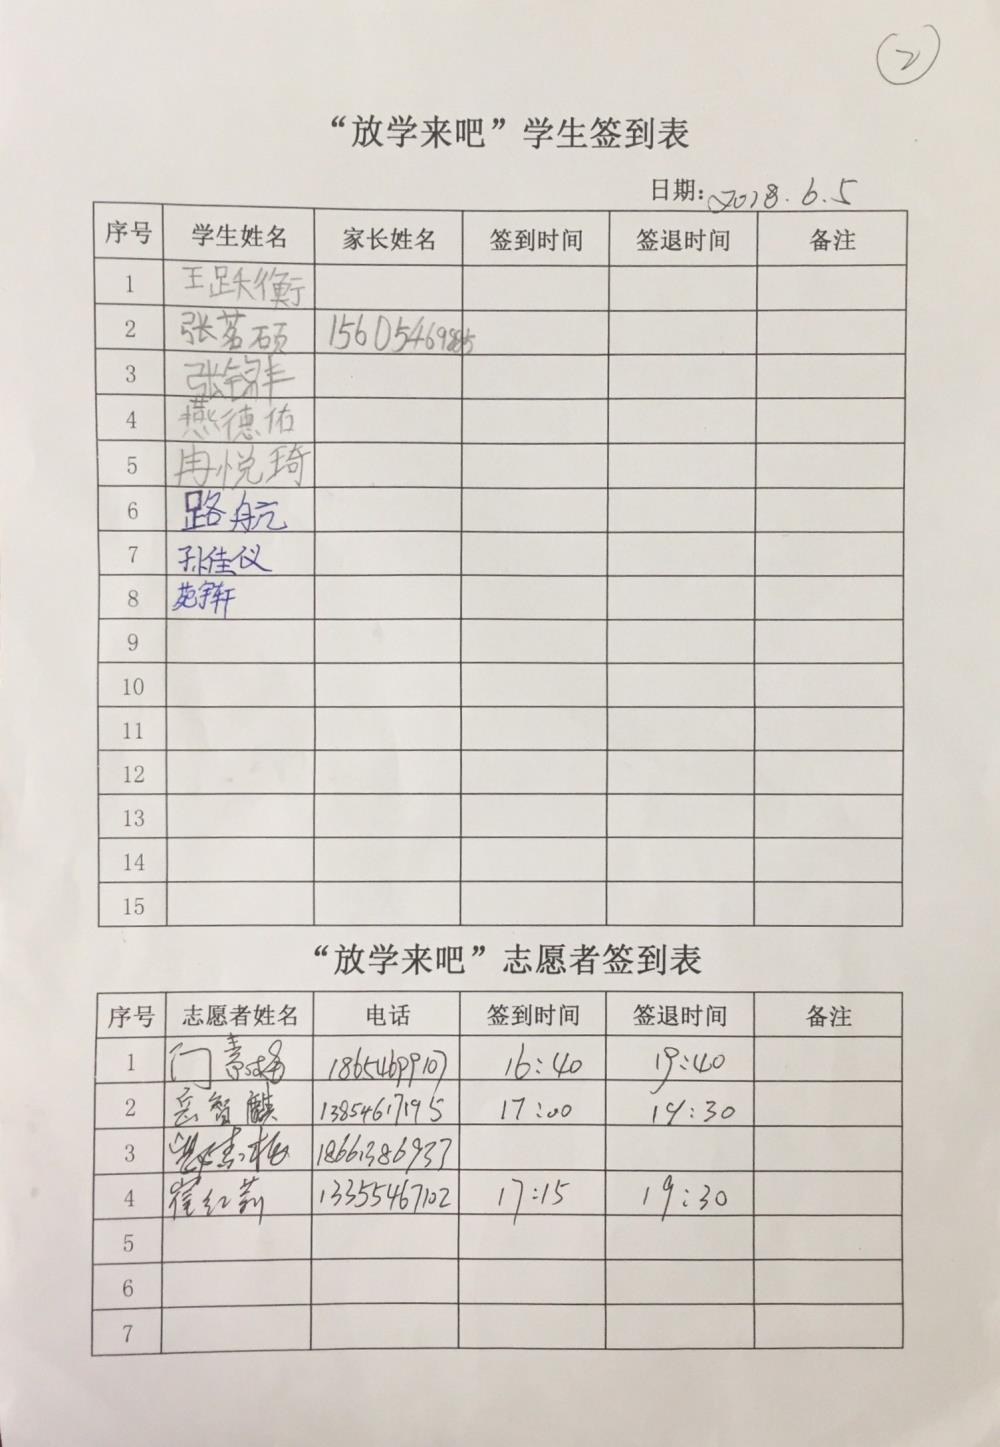 2
“放学来吧”学生签到表
日期: 2018.6.5
序号 学生姓名 家长姓名 签到时间 签退时间 备注
1 王跃衡
2 张茗硕 15605469885
3 张锦丰
4 燕德佑
5 冉悦琦
6 路航
7 孙佳仪
8 苑宇轩
9
10
11
12
13
14
15
“放学来吧”志愿者签到表
序号 志愿者姓名 电话 签到时间 签退时间 备注
1 门素梅 18654699107 16:40 19:40
2 岳智麒 13854617195 17:00 19:30
3 18661386937
4 崔红莉 13355467102 17:15 19:30
5
6
7